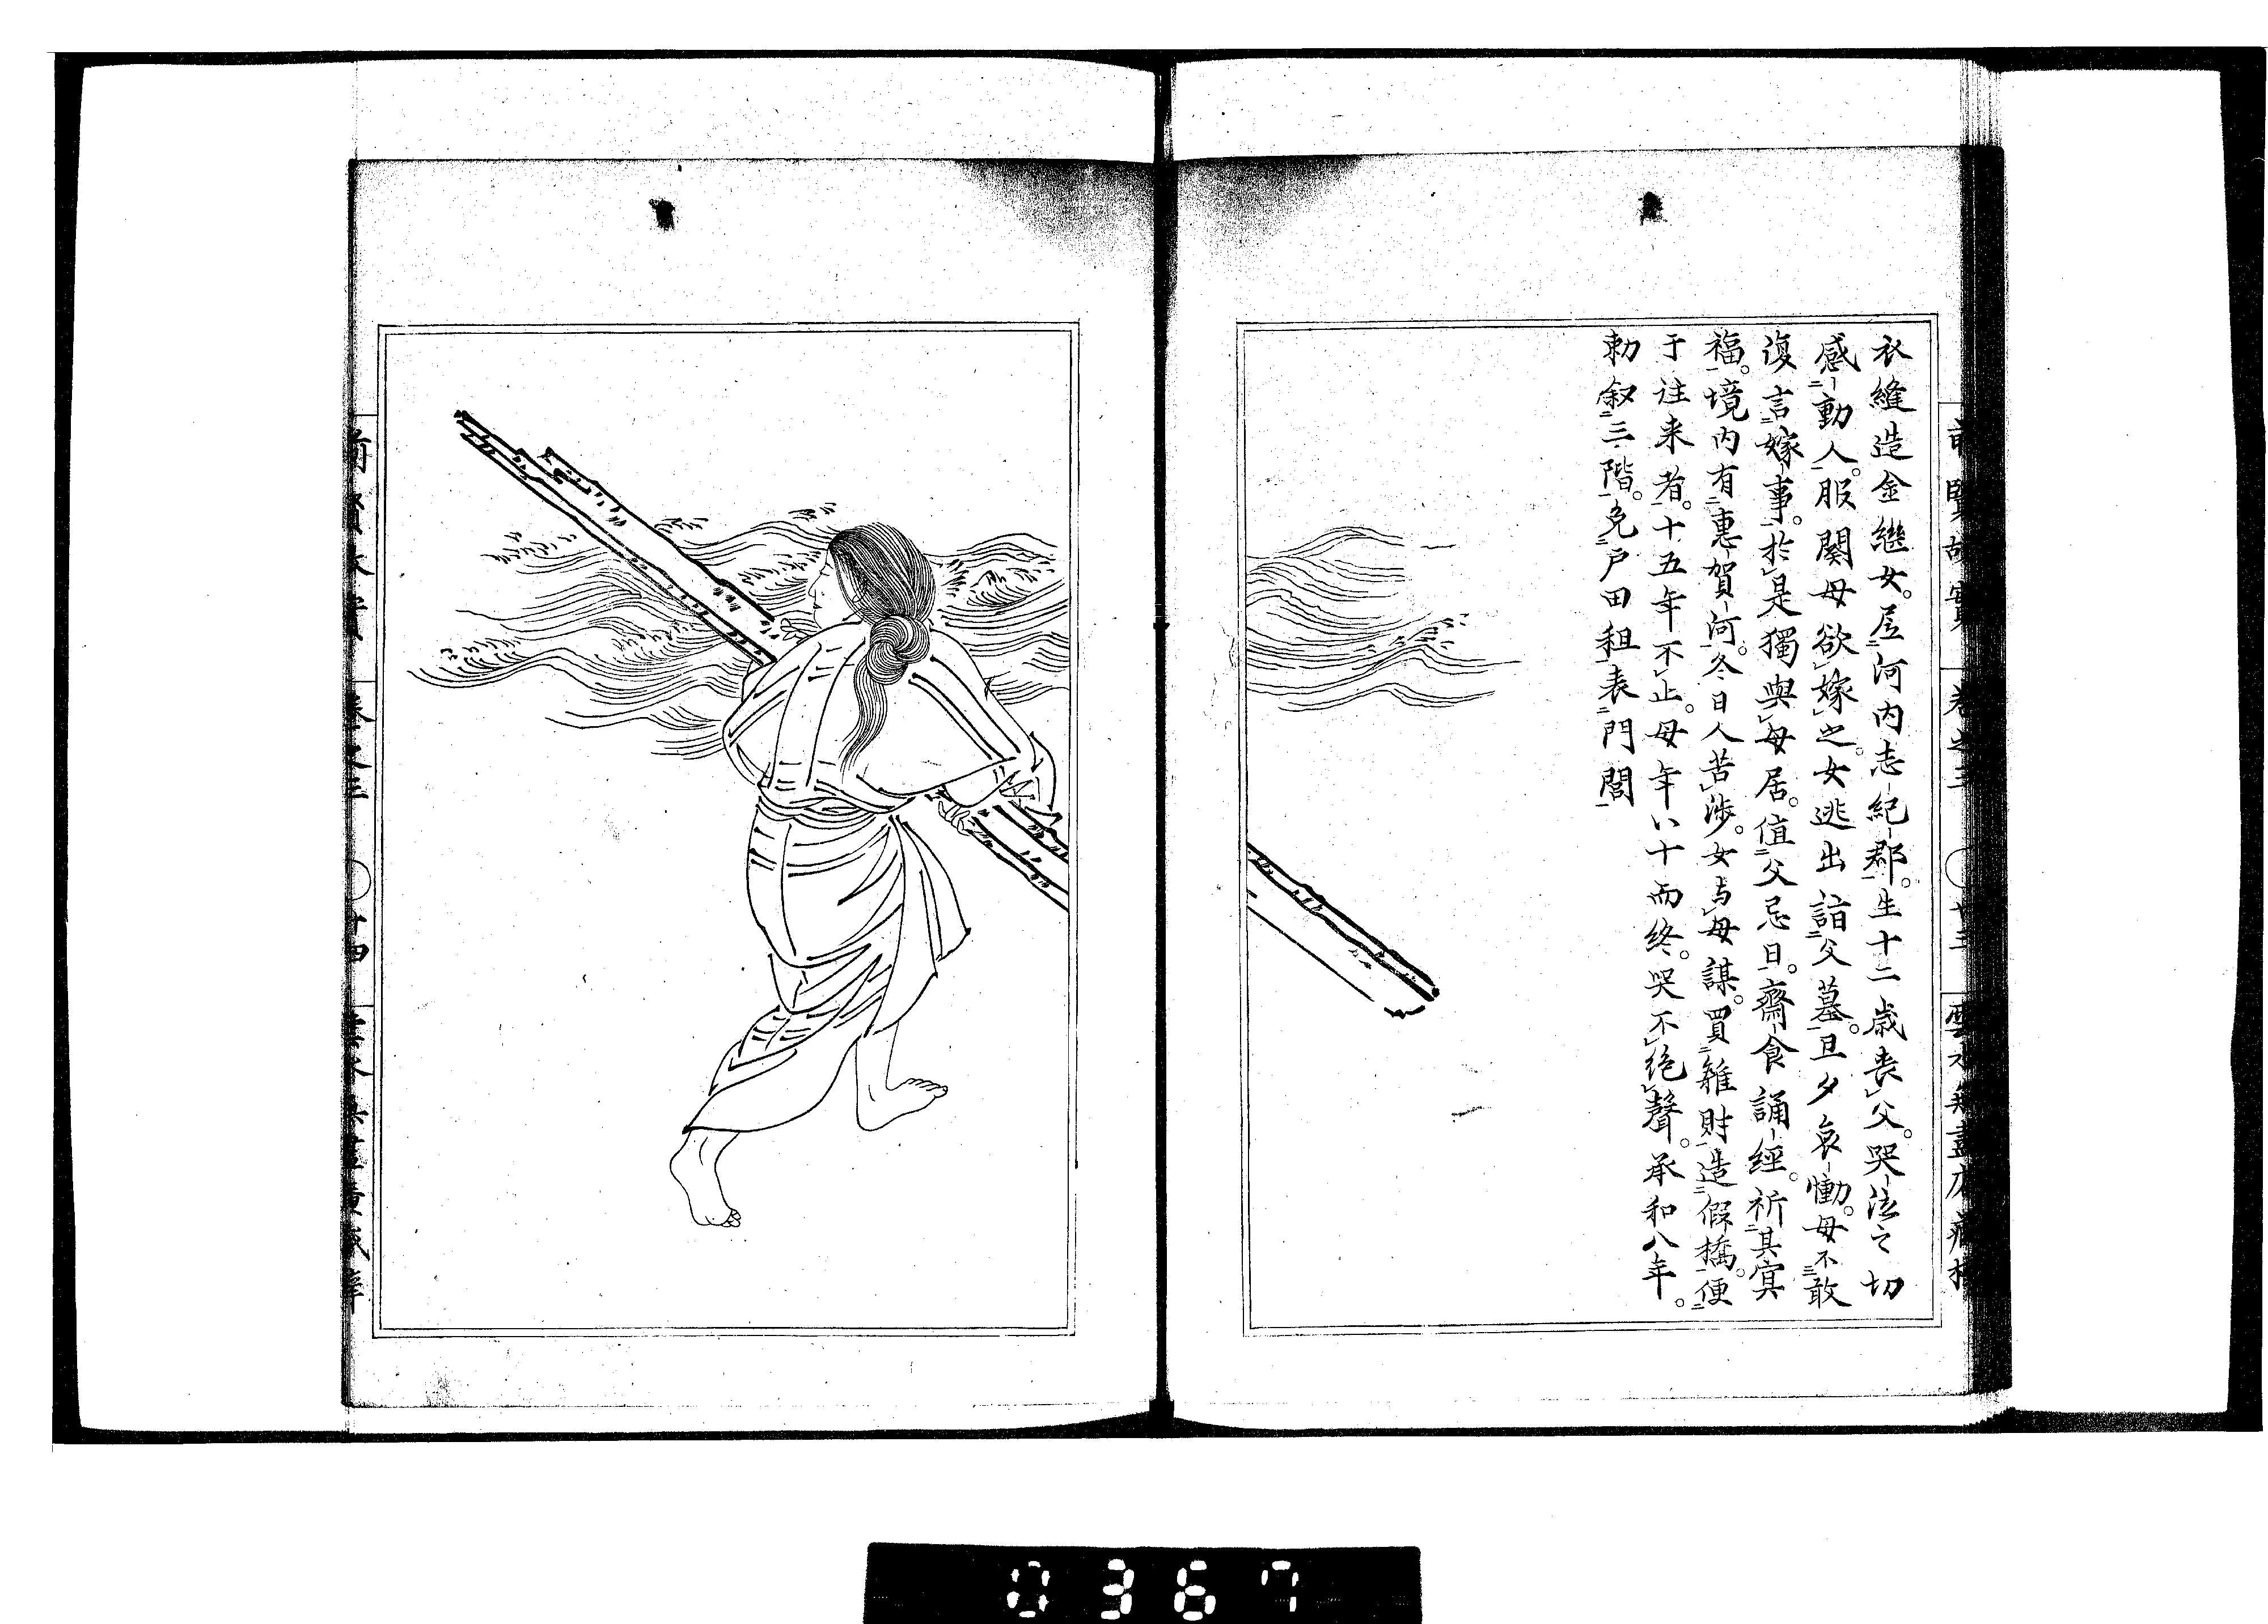 前賢故實 卷之三 十三 雲水無盡庵藏
衣縫造金継女。居河内志紀郡。生十二歳喪父。哭泣之切
感動人。服闋母欲嫁之。女逃出詣父墓。旦夕哀慟。母不敢
復言嫁事。於是獨與母居。值父忌日。齋食誦經。祈其冥
福。境内有惠賀河。冬日人苦渉。女与母謀。買雑財造假橋。便
于往来者。十五年不止。母年八十而终。哭不绝聲。承和八年。
勅叙三階。免戸田租表門閭
0367